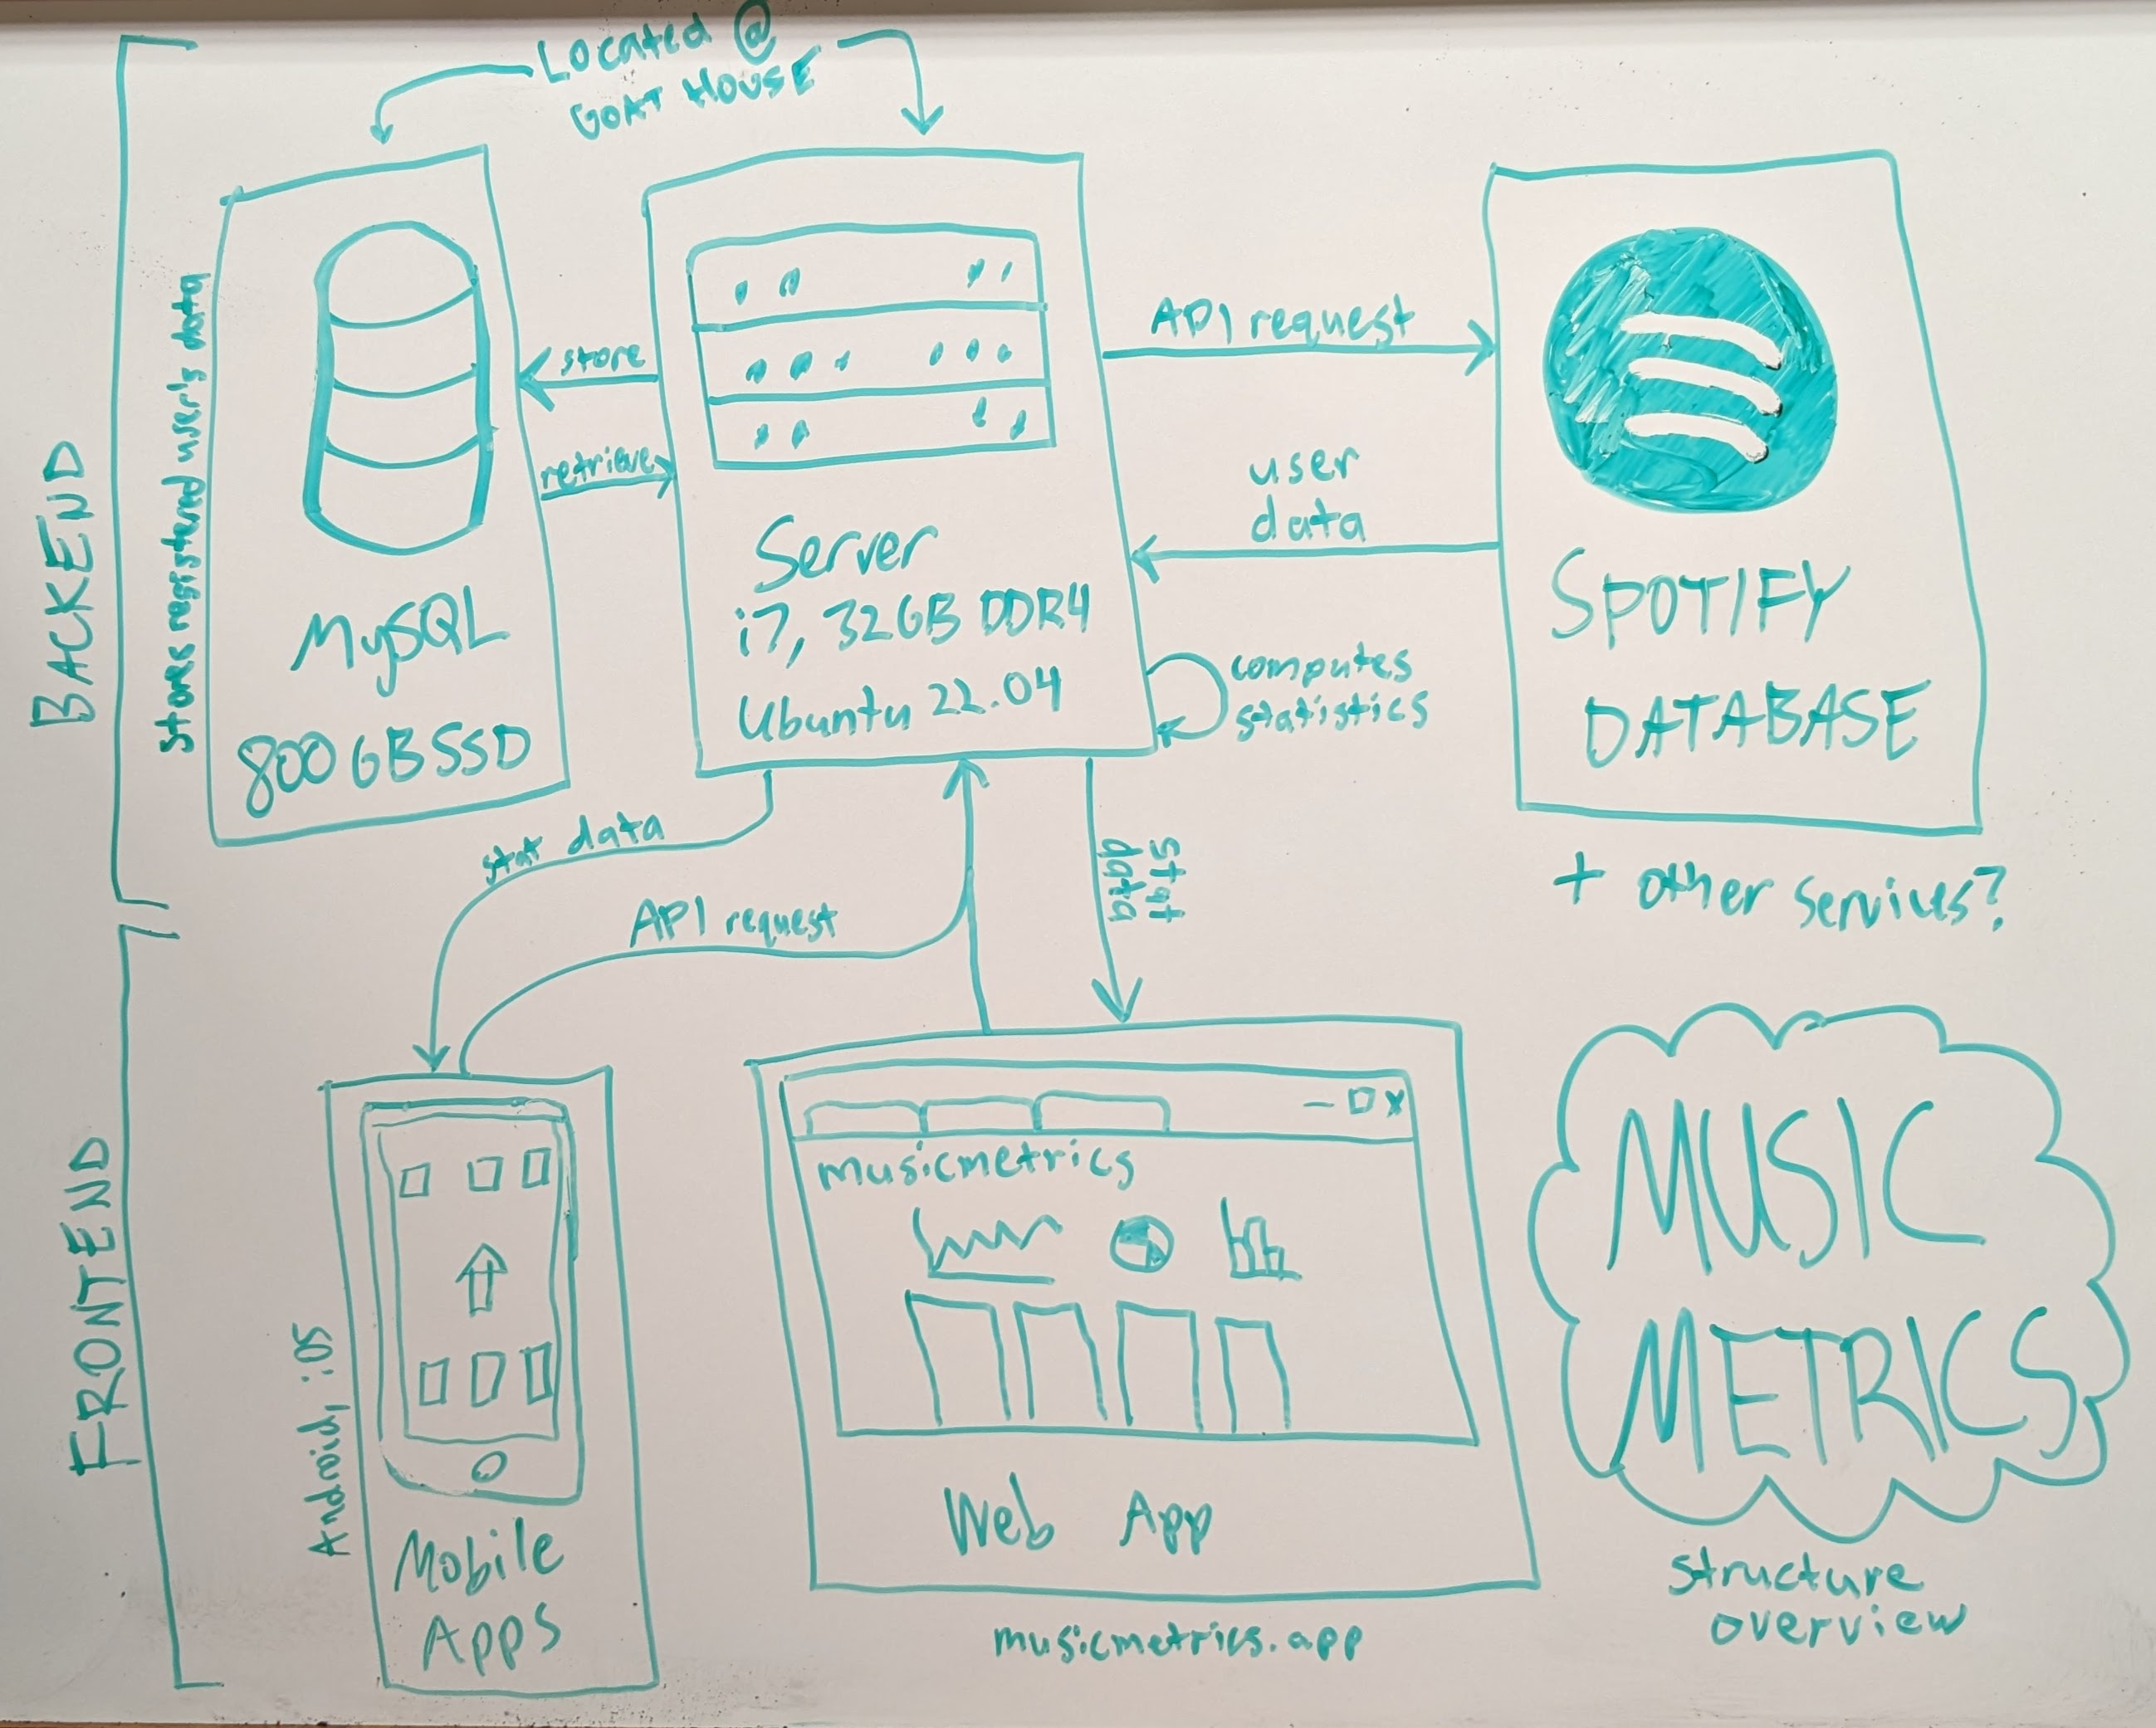 Located @
GOAT HOUSE
BACKEND
Stores registered user's data
MySQL
800 GB SSD
store
retrieve
Server
i7, 32GB DDR4
Ubuntu 22.04
API request
user
data
computes
statistics
SPOTIFY
DATABASE
+ other services?
stat data
API request
stat
data
FRONTEND
Android, iOS
Mobile
Apps
- □ x
musicmetrics
Web App
musicmetrics.app
MUSIC
METRICS
structure
overview